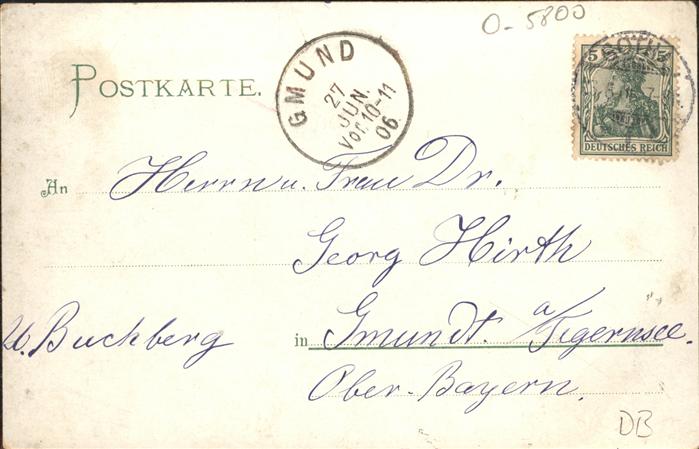 O-5800
POSTKARTE.
GMUND
27
JUN.
Vor. 10-11
06.
5 5
DEUTSCHES REICH
An Herrn u. Frau Dr.
Georg Hirth
in Gmund. a/Tegernsee.
Ober-Bayern.
Buchberg
DB